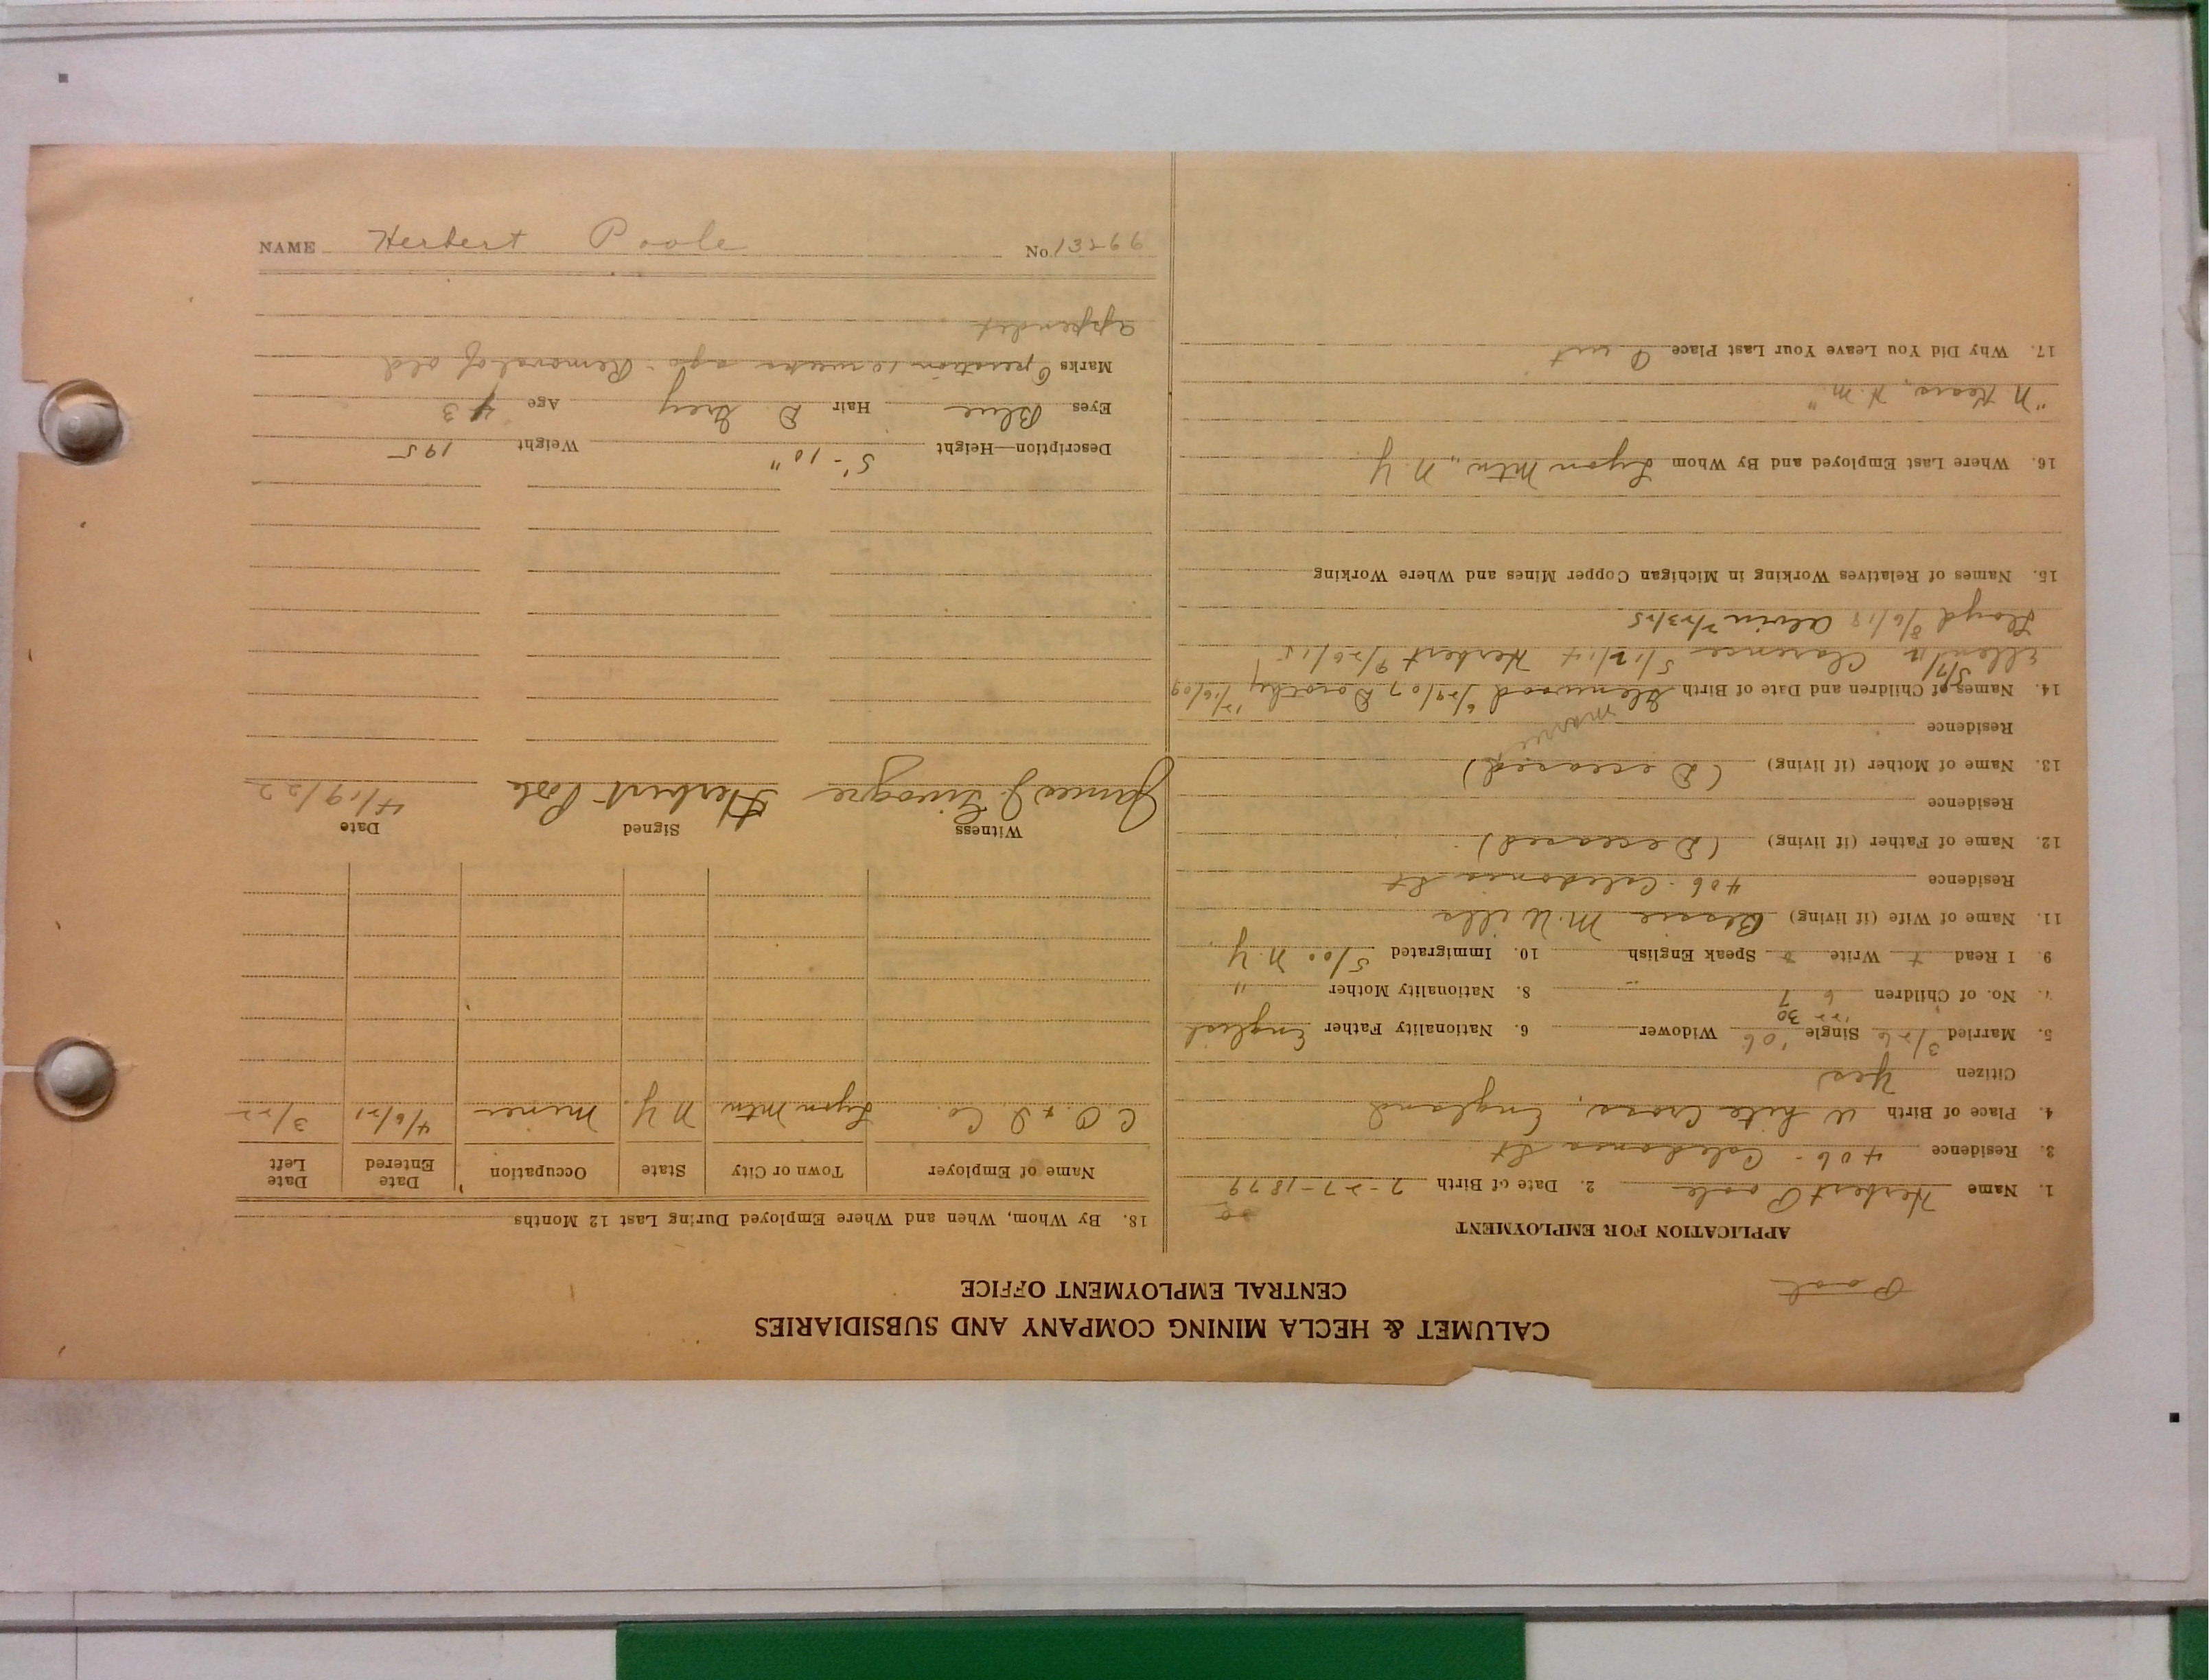 CALUMET & HECLA MINING COMPANY AND SUBSIDIARIES
CENTRAL EMPLOYMENT OFFICE
APPLICATION FOR EMPLOYMENT
1. Name Herbert Poole 2. Date of Birth 7-27-1879
3. Residence 406 - Caledonia St
4. Place of Birth White Cross, England
Citizen Yes
5. Married 3/26 Single '06 Widower 6. Nationality Father English
7. No. of Children 6 7 8. Nationality Mother "
9. I Read Write Speak English 10. Immigrated 5/00 N.Y.
11. Name of Wife (if living) Bessie M. Wills
Residence 406 - Caledonia St
12. Name of Father (if living) (Deceased)
Residence
13. Name of Mother (if living) (Deceased)
Residence
14. Names of Children and Date of Birth Glenwood 6/29/07 Dorothy 12/16/09
Ellen 5/7/12 Clarence 5/12/14 Herbert 9/26/15
Lloyd 8/6/18 Alvin 7/23/25
15. Names of Relatives Working in Michigan Copper Mines and Where Working
16. Where Last Employed and By Whom Lyon Mtn., N.Y
17. Why Did You Leave Your Last Place Quit
18. By Whom, When and Where Employed During Last 12 Months
Name of Employer Town or City State Occupation Date Entered Date Left
C. O. & I. Co. Lyon Mtn N.Y. Miner 4/6/21 3/22
Witness Signed Date
James J. Herbert Poole 4/19/22
Description—Height 5'-10" Weight 195
Eyes Blue Hair D. Grey Age 43
Marks Operation 10 weeks ago - Removal of old
appendix
NAME Herbert Poole No. 13266